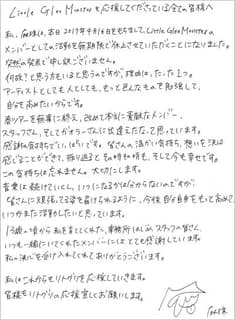 Little Glee Monsterを応援してくださっている全ての皆様へ
私、麻珠は、本日2017年4月6日をもちまして、Little Glee Monsterの
メンバーとしての活動を無期限で休止させていただくことになりました。
突然の発表で申し訳ございません。
何故？と思う方もいると思うのですが理由は、たった1つ。
アーティストとしても人としても、もっと色んなものを
自分を高めたいからです。
春ツアーを無事に終え、改めて本当に素敵なメンバー、
スタッフさん、そしてガオラーさんに出逢えたなって思っています。
感謝の気持ちでいっぱいです。皆さんの温かい気持ち、想いを沢山
感じることができて、振り返るとその時も、そして今も幸せです。
この気持ちは忘れません。大切にします。
音楽は続けていくし、いつになるかは分からないのですが、
皆さんに頑張ってる姿を届けられるように、今後自分自身をもっと高めて、
いつかまた活動したいと思っています。
13歳の頃から私を育ててくれた、事務所はじめ、スタッフの皆さん、
いつも一緒にいてくれたメンバーにはとても感謝しています。
私の決心を受け入れてくれてありがとうございます。
私はこれからもリトグリを応援していきます。
皆様もリトグリの応援宜しくお願いします。
麻珠